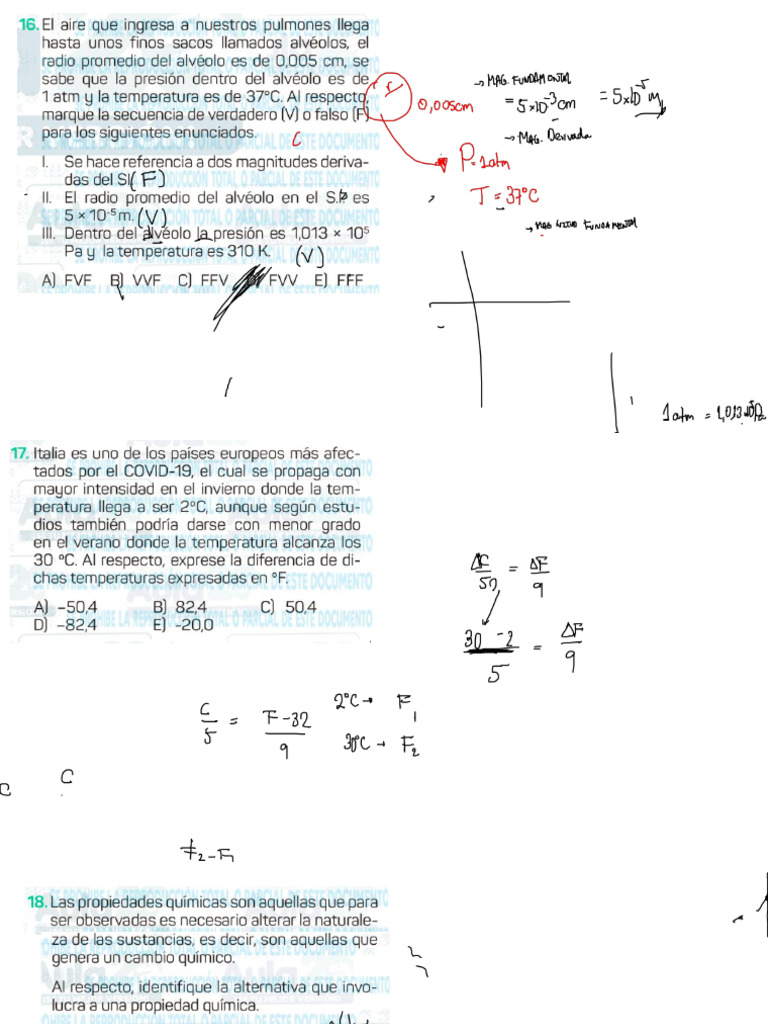 16. El aire que ingresa a nuestros pulmones llega
hasta unos finos sacos llamados alvéolos, el
radio promedio del alvéolo es de 0,005 cm, se
sabe que la presión dentro del alvéolo es de
1 atm y la temperatura es de 37°C. Al respecto,
marque la secuencia de verdadero (V) o falso (F)
para los siguientes enunciados.
I. Se hace referencia a dos magnitudes deriva-
das del SI. (F)
II. El radio promedio del alvéolo en el S.I. es
5 × 10⁻⁵ m. (V)
III. Dentro del alvéolo la presión es 1,013 × 10⁵
Pa y la temperatura es 310 K. (V)
A) FVF B) VVF C) FFV D) FVV E) FFF
r
0,005cm
→ MAG. FUNDAMENTAL
= 5×10⁻³ cm = 5×10⁻⁵ m
→ MAG. Derivada
P = 1 atm
T = 37°C
FUNDAMENTAL
1 atm = 1,013×10⁵ Pa
17. Italia es uno de los países europeos más afec-
tados por el COVID-19, el cual se propaga con
mayor intensidad en el invierno donde la tem-
peratura llega a ser 2°C, aunque según estu-
dios también podría darse con menor grado
en el verano donde la temperatura alcanza los
30 °C. Al respecto, exprese la diferencia de di-
chas temperaturas expresadas en °F.
A) –50,4 B) 82,4 C) 50,4
D) –82,4 E) -20,0
ΔC/5 = ΔF/9
30 - 2/5 = ΔF/9
C/5 = F-32/9
2°C → F₁
30°C → F₂
C
C
F₂ - F₁
18. Las propiedades químicas son aquellas que para
ser observadas es necesario alterar la naturale-
za de las sustancias, es decir, son aquellas que
genera un cambio químico.
Al respecto, identifique la alternativa que invo-
lucra a una propiedad química.